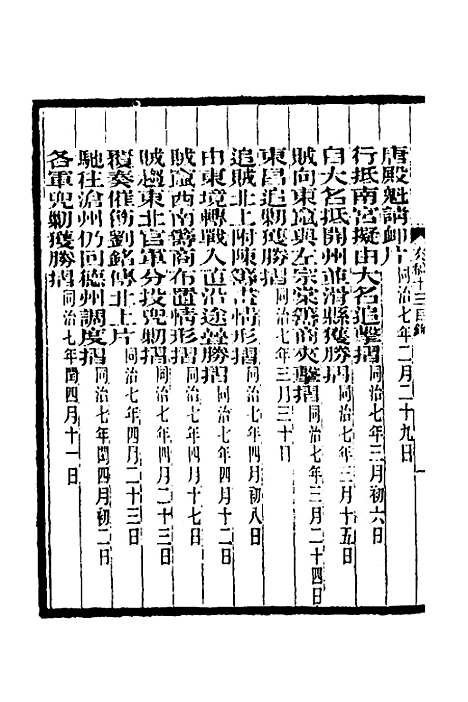 唐殿魁請卹片同治七年二月二十九日
行抵南宮擬由大名追擊摺同治七年三月初六日
自大名抵開州並滑縣獲勝摺同治七年三月十五日
賊向東竄與左宗棠籌商夾擊摺同治七年三月二十四日
東昌追勦獲勝摺同治七年三月三十日
追賊北上附陳籌辦情形摺同治七年四月初八日
由東境轉戰入直沿途疊勝摺同治七年四月十二日
賊竄西南籌商布置情形摺同治七年四月十七日
賊趨東北官軍分投兜勦摺同治七年四月二十三日
覆奏催劉銘傳北上片同治七年四月二十三日
馳往滄州仍回德州調度摺同治七年閏四月初二日
各軍兜勦獲勝摺同治七年閏四月十一日